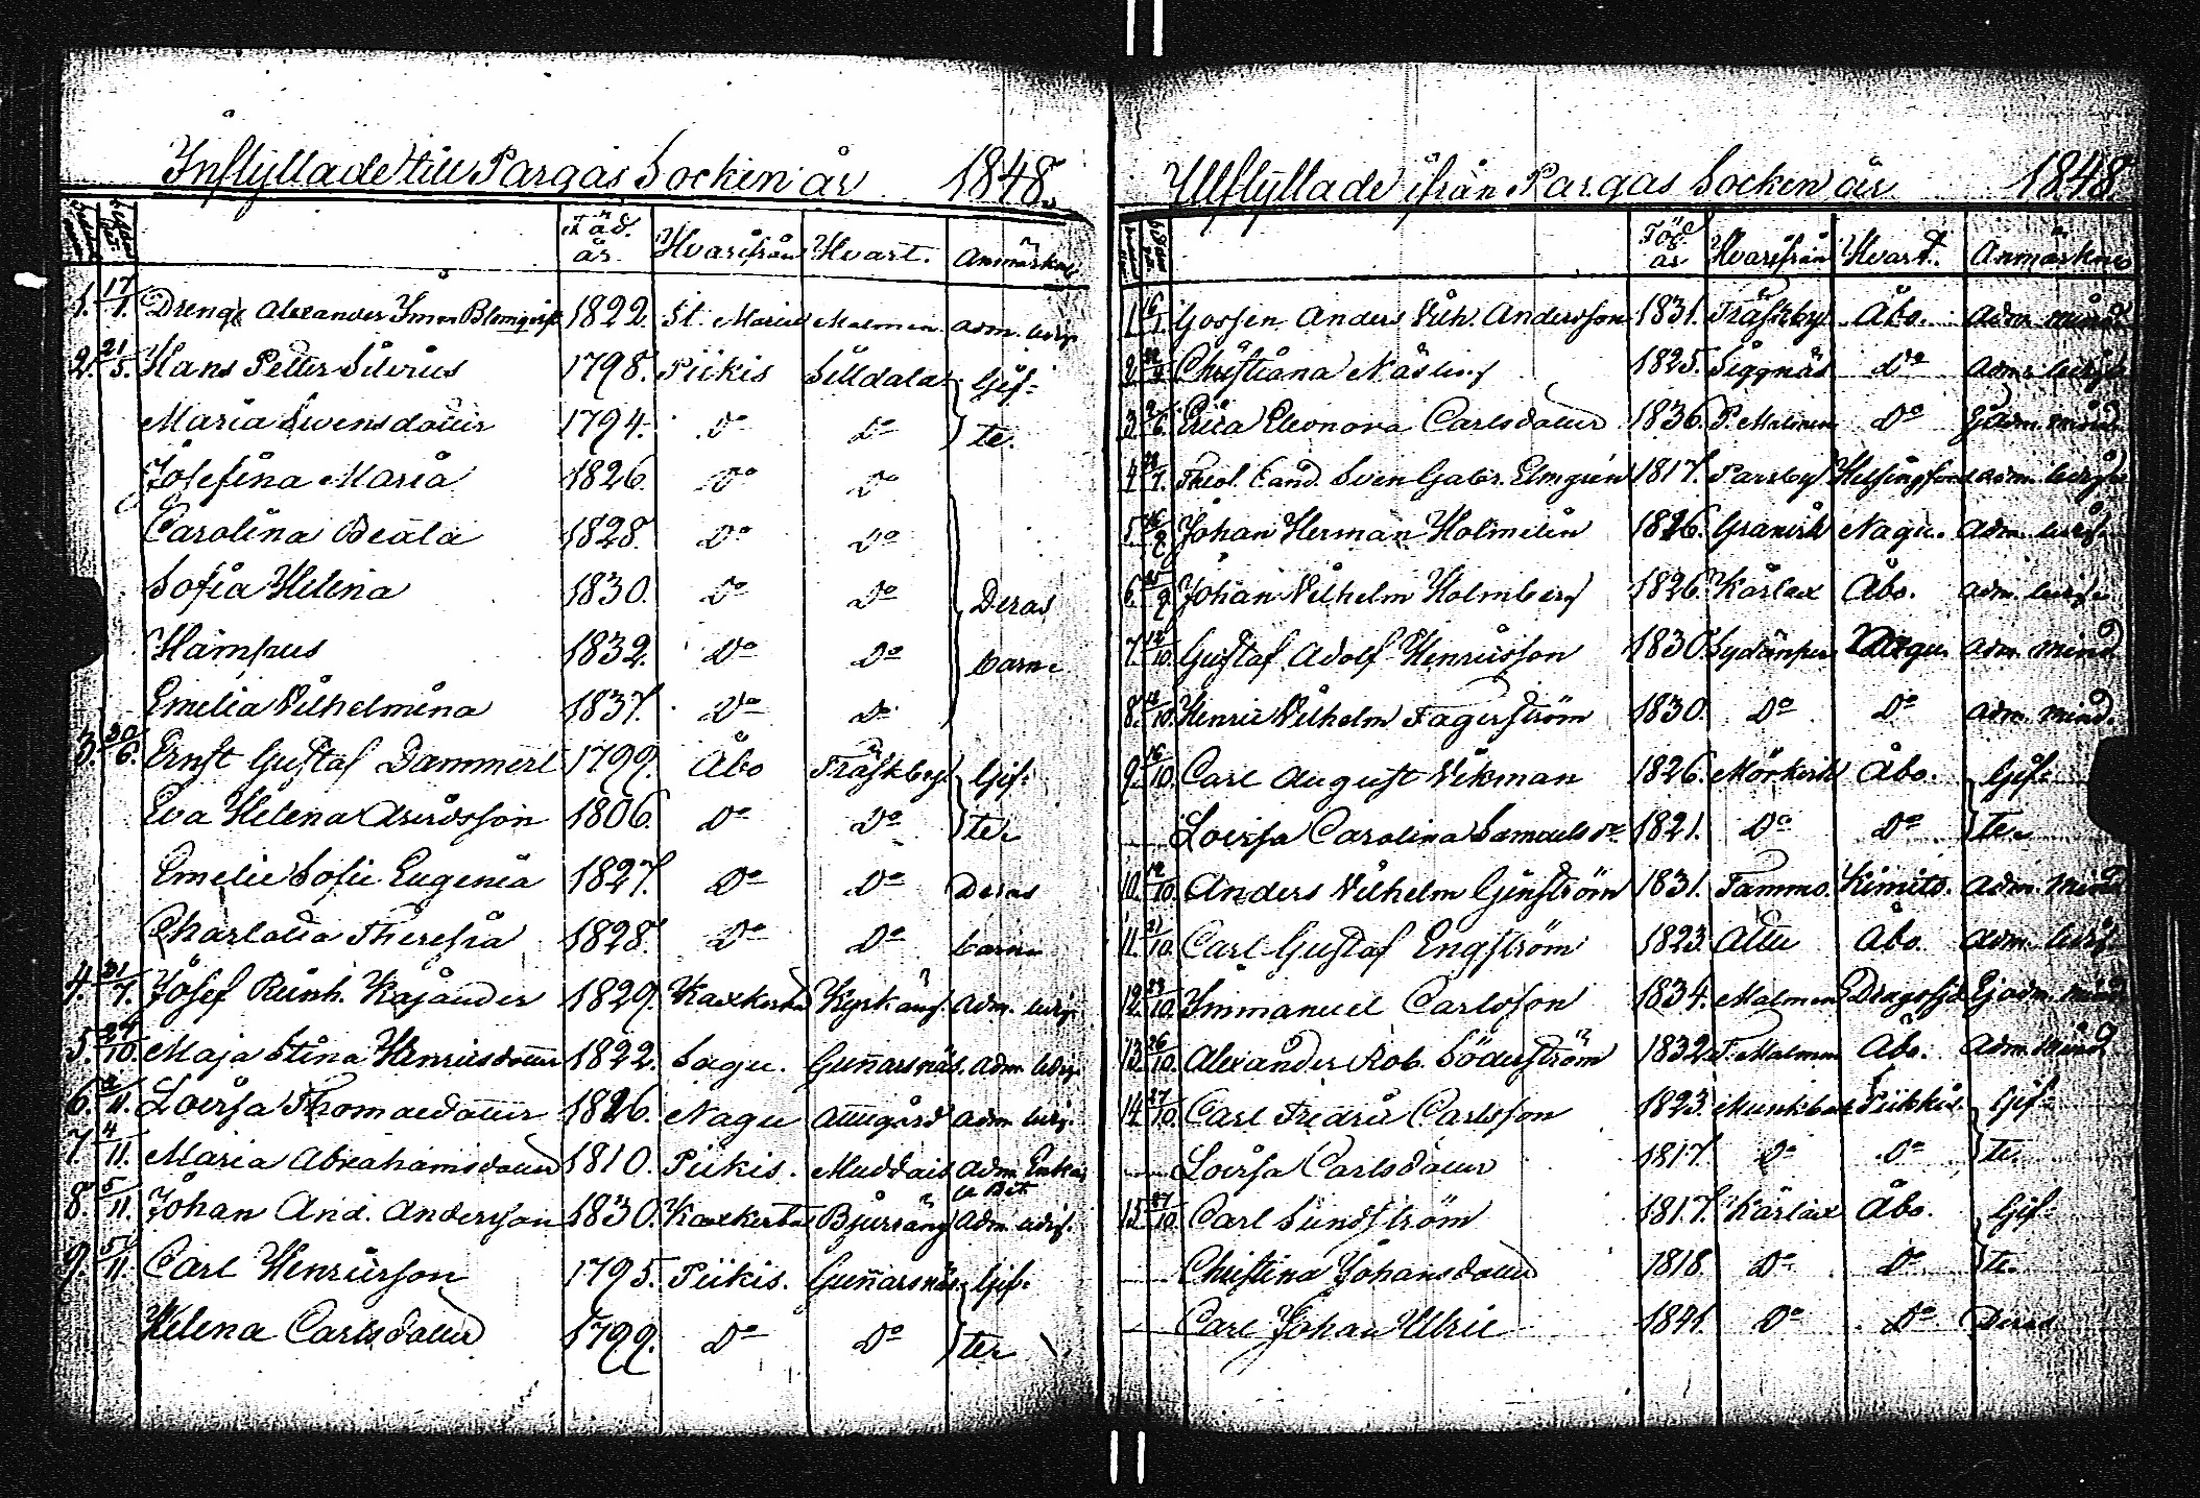 Inflyttade till Pargas Socken år 1848.
Född år. Hvarifrån Hvart. Anmärkn.
1. 17/1. Dreng Alexander Iman Blomqvist 1822. St. Marie Malmen adm. ledig.
2. 21/5. Hans Petter Silvrius 1798. Piikis Silldala Gif-
Maria Svensdotter 1794. Do Do te.
Josefina Maria 1826. Do Do
Carolina Beata 1828. Do Do
Sofia Helena 1830. Do Do Deras
Hampus 1832. Do Do barn
Emelia Vilhelmina 1837. Do Do
3. 20/6. Ernst Gustaf Dammert 1799. Åbo Träskby Gif-
Eva Helena Arvidsson 1806. Do Do ter
Emelie Sofie Eugenia 1827. Do Do Deras
Charlotta Theresia 1828. Do Do barn
4. 31/7. Josef Reinh. Kajander 1829. Kaxkerta Kyrkäng. adm. ledig.
5. 24/10. Maja Stina Henricsdotter 1822. Sagu. Gunnarsnäs. adm. ledig.
6. 2/11. Lovisa Thomasdotter 1826. Nagu Attugård adm. ledig.
7. 4/11. Maria Abrahamsdotter 1810. Piikis. Muddais adm. Enka
8. 5/11. Johan And. Andersson 1830. Kaxkerta Bjursäng adm. ledig.
9. 5/11. Carl Henricsson 1795. Piikis. Gunnarsnäs Gif-
Helena Carlsdotter 1799. Do Do ter
Utflyttade ifrån Pargas Socken år 1848.
Född år Hvarifrån Hvart. Anmärkn.
1. Gossen Anders Vilh. Andersson 1831. Träskby Åbo. adm. mind.
2. Christiana Näsling 1825. Siggnäs do adm. ledig
3. Erica Eleonora Carlsdotter 1836. P. Malmen Do Ej adm. mind.
4. Theol. Cand. Sven Gabr. Elmgrén 1817. Parsby Helsingfors adm. ledig
5. Johan Herman Holmelin 1826. Granvik Nagu. adm. ledig.
6. Johan Vilhelm Holmberg 1826. Kårlax Åbo. adm. ledig.
7. 12/10. Gustaf Adolf Henricsson 1830. Sydänper Nagu adm. mind
8. 12/10. Henric Vilhelm Fagerström 1830. Do Do adm. mind.
9. 16/10. Carl August Vikman 1826. Mörkvik Åbo. Gif-
Lovisa Carolina Samuelsdr 1821. Do Do te.
10. 12/10. Anders Vilhelm Genström 1831. Tammo. Kimito. adm. mind
11. 21/10. Carl Gustaf Engström 1823. Attu Åbo. adm. ledig.
12. 23/10. Immanuel Carlsson 1834. Malmen Dragsfjd Ej adm. mind
13. 26/10. Alexander Rob. Söderström 1832. T. Malmen Åbo. adm. mind
14. 27/10. Carl Fridric Carlsson 1823. Munkbac Piikkis. Gif-
Lovisa Carlsdotter 1817. Do Do te.
15. 27/10. Carl Sundström 1817. Kårlax Åbo. Gif-
Christina Johansdotter 1818. Do Do te.
Carl Johan Ulric 1841. Do Do Deras